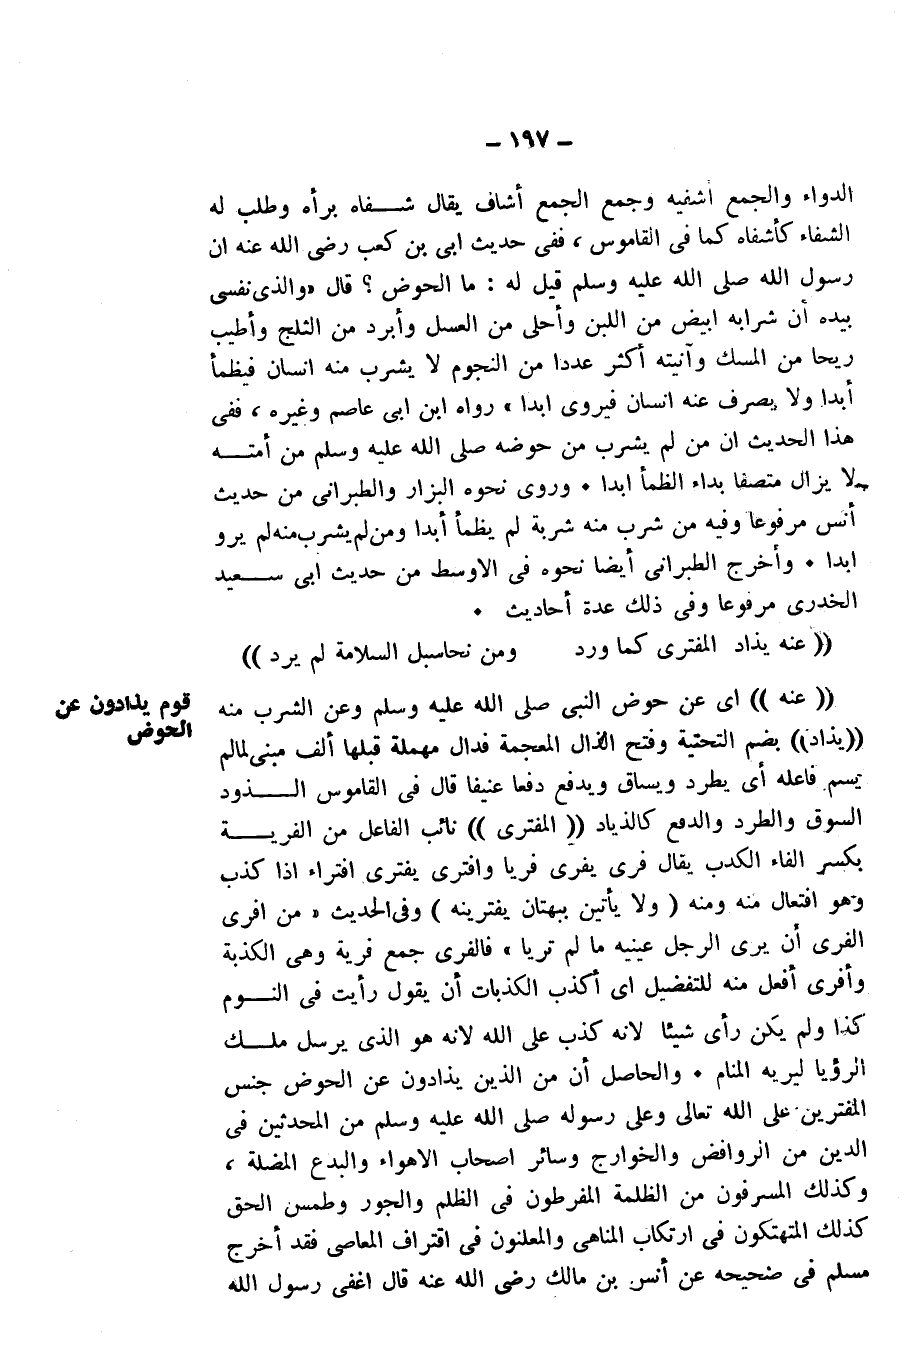 – ١٩٧ –
الدواء والجمع أشفيه وجمع الجمع أشاف يقال شـــفاه برأه وطلب له
الشفاء كأشفاه كما فى القاموس ، ففى حديث ابى بن كعب رضى الله عنه ان
رسول الله صلى الله عليه وسلم قيل له : ما الحوض ؟ قال «والذى نفسى
بيده أن شرابه ابيض من اللبن وأحلى من العسل وأبرد من الثلج وأطيب
ريحا من المسك وآنيته أكثر عددا من النجوم لا يشرب منه انسان فيظمأ
أبدا ولا يصرف عنه انسان فيروى ابدا » رواه ابن ابى عاصم وغيره ، ففى
هذا الحديث ان من لم يشرب من حوضه صلى الله عليه وسلم من أمتـــه
لا يزال متصفا بداء الظمأ ابدا • وروى نحوه البزار والطبرانى من حديث
أنس مرفوعا وفيه من شرب منه شربة لم يظمأ أبدا ومن لم يشرب منه لم يرو
ابدا • وأخرج الطبرانى أيضا نحوه فى الاوسط من حديث ابى ســـعيد
الخدرى مرفوعا وفى ذلك عدة أحاديث •
(( عنه يذاد المفترى كما ورد ومن نحا سبل السلامة لم يرد ))
قوم يذادون عن
الحوض
(( عنه )) اى عن حوض النبى صلى الله عليه وسلم وعن الشرب منه
((يذاد)) بضم التحتية وفتح الذال المعجمة فدال مهملة قبلها ألف مبنى لما لم
يسم فاعله أى يطرد ويساق ويدفع دفعا عنيفا قال فى القاموس الـــذود
السوق والطرد والدفع كالذياد (( المفترى )) نائب الفاعل من الفريـــة
بكسر الفاء الكذب يقال فرى يفرى فريا وافترى يفترى افتراء اذا كذب
وهو افتعال منه ومنه ( ولا يأتين ببهتان يفترينه ) وفى الحديث « من افرى
الفرى أن يرى الرجل عينيه ما لم تريا » فالفرى جمع فرية وهى الكذبة
وأفرى أفعل منه للتفضيل اى أكذب الكذبات أن يقول رأيت فى النـــوم
كذا ولم يكن رأى شيئا لانه كذب على الله لانه هو الذى يرسل ملـــك
الرؤيا ليريه المنام • والحاصل أن من الذين يذادون عن الحوض جنس
المفترين على الله تعالى وعلى رسوله صلى الله عليه وسلم من المحدثين فى
الدين من الروافض والخوارج وسائر اصحاب الاهواء والبدع المضلة ،
وكذلك المسرفون من الظلمة المفرطون فى الظلم والجور وطمس الحق
كذلك المتهتكون فى ارتكاب المناهى والمعلنون فى اقتراف المعاصى فقد أخرج
مسلم فى صحيحه عن أنس بن مالك رضى الله عنه قال اغفى رسول الله